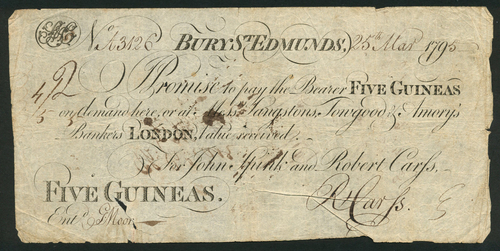 No A3126 BURY ST EDMUNDS, 25th Mar 1795
I Promise to pay the Bearer FIVE GUINEAS
on demand here, or at Messrs Langstons, Towgood & Amory's
Bankers LONDON, Value received.
For John Spink and Robert Carss.
FIVE GUINEAS. Rt Carss.
Entd